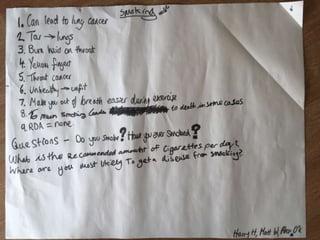 Smoking
1. Can lead to lung cancer
2. Tar → lungs
3. Burn hairs on throat
4. Yellow fingers
5. Throat cancer
6. Unhealthy → unfit
7. Make you out of breath easier during exercise
8. To main Smoking Leads to death in some cases
9. RDA = none
Questions - Do you smoke? Have you ever Smoked?
What is the Recommended amount of Cigarettes per day?
Where are you most likely To get a disease from smoking?
Harry H, Matt W,